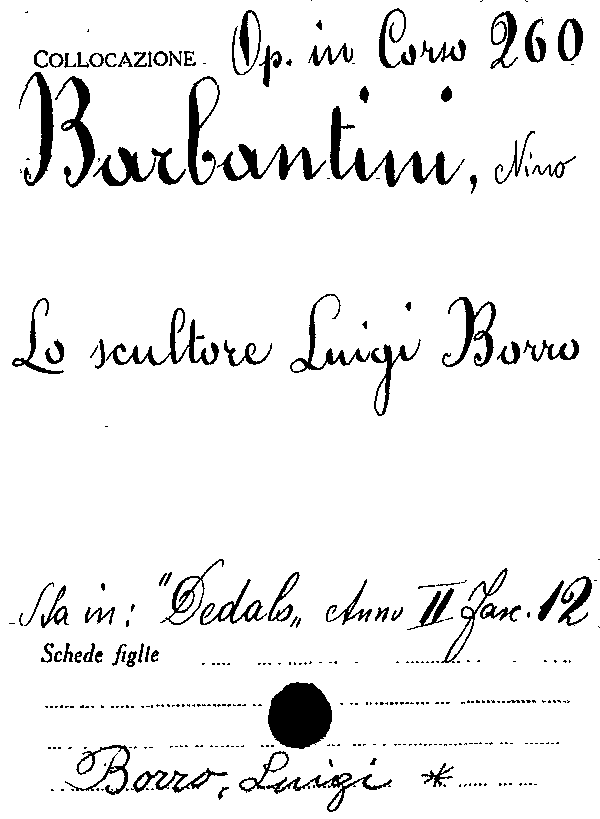 COLLOCAZIONE Op. in Corso 260
Barbantini, Nino
Lo scultore Luigi Borro
Sta in: "Dedalo„ Anno II Fasc. 12
Schede figlie
Borro, Luigi *